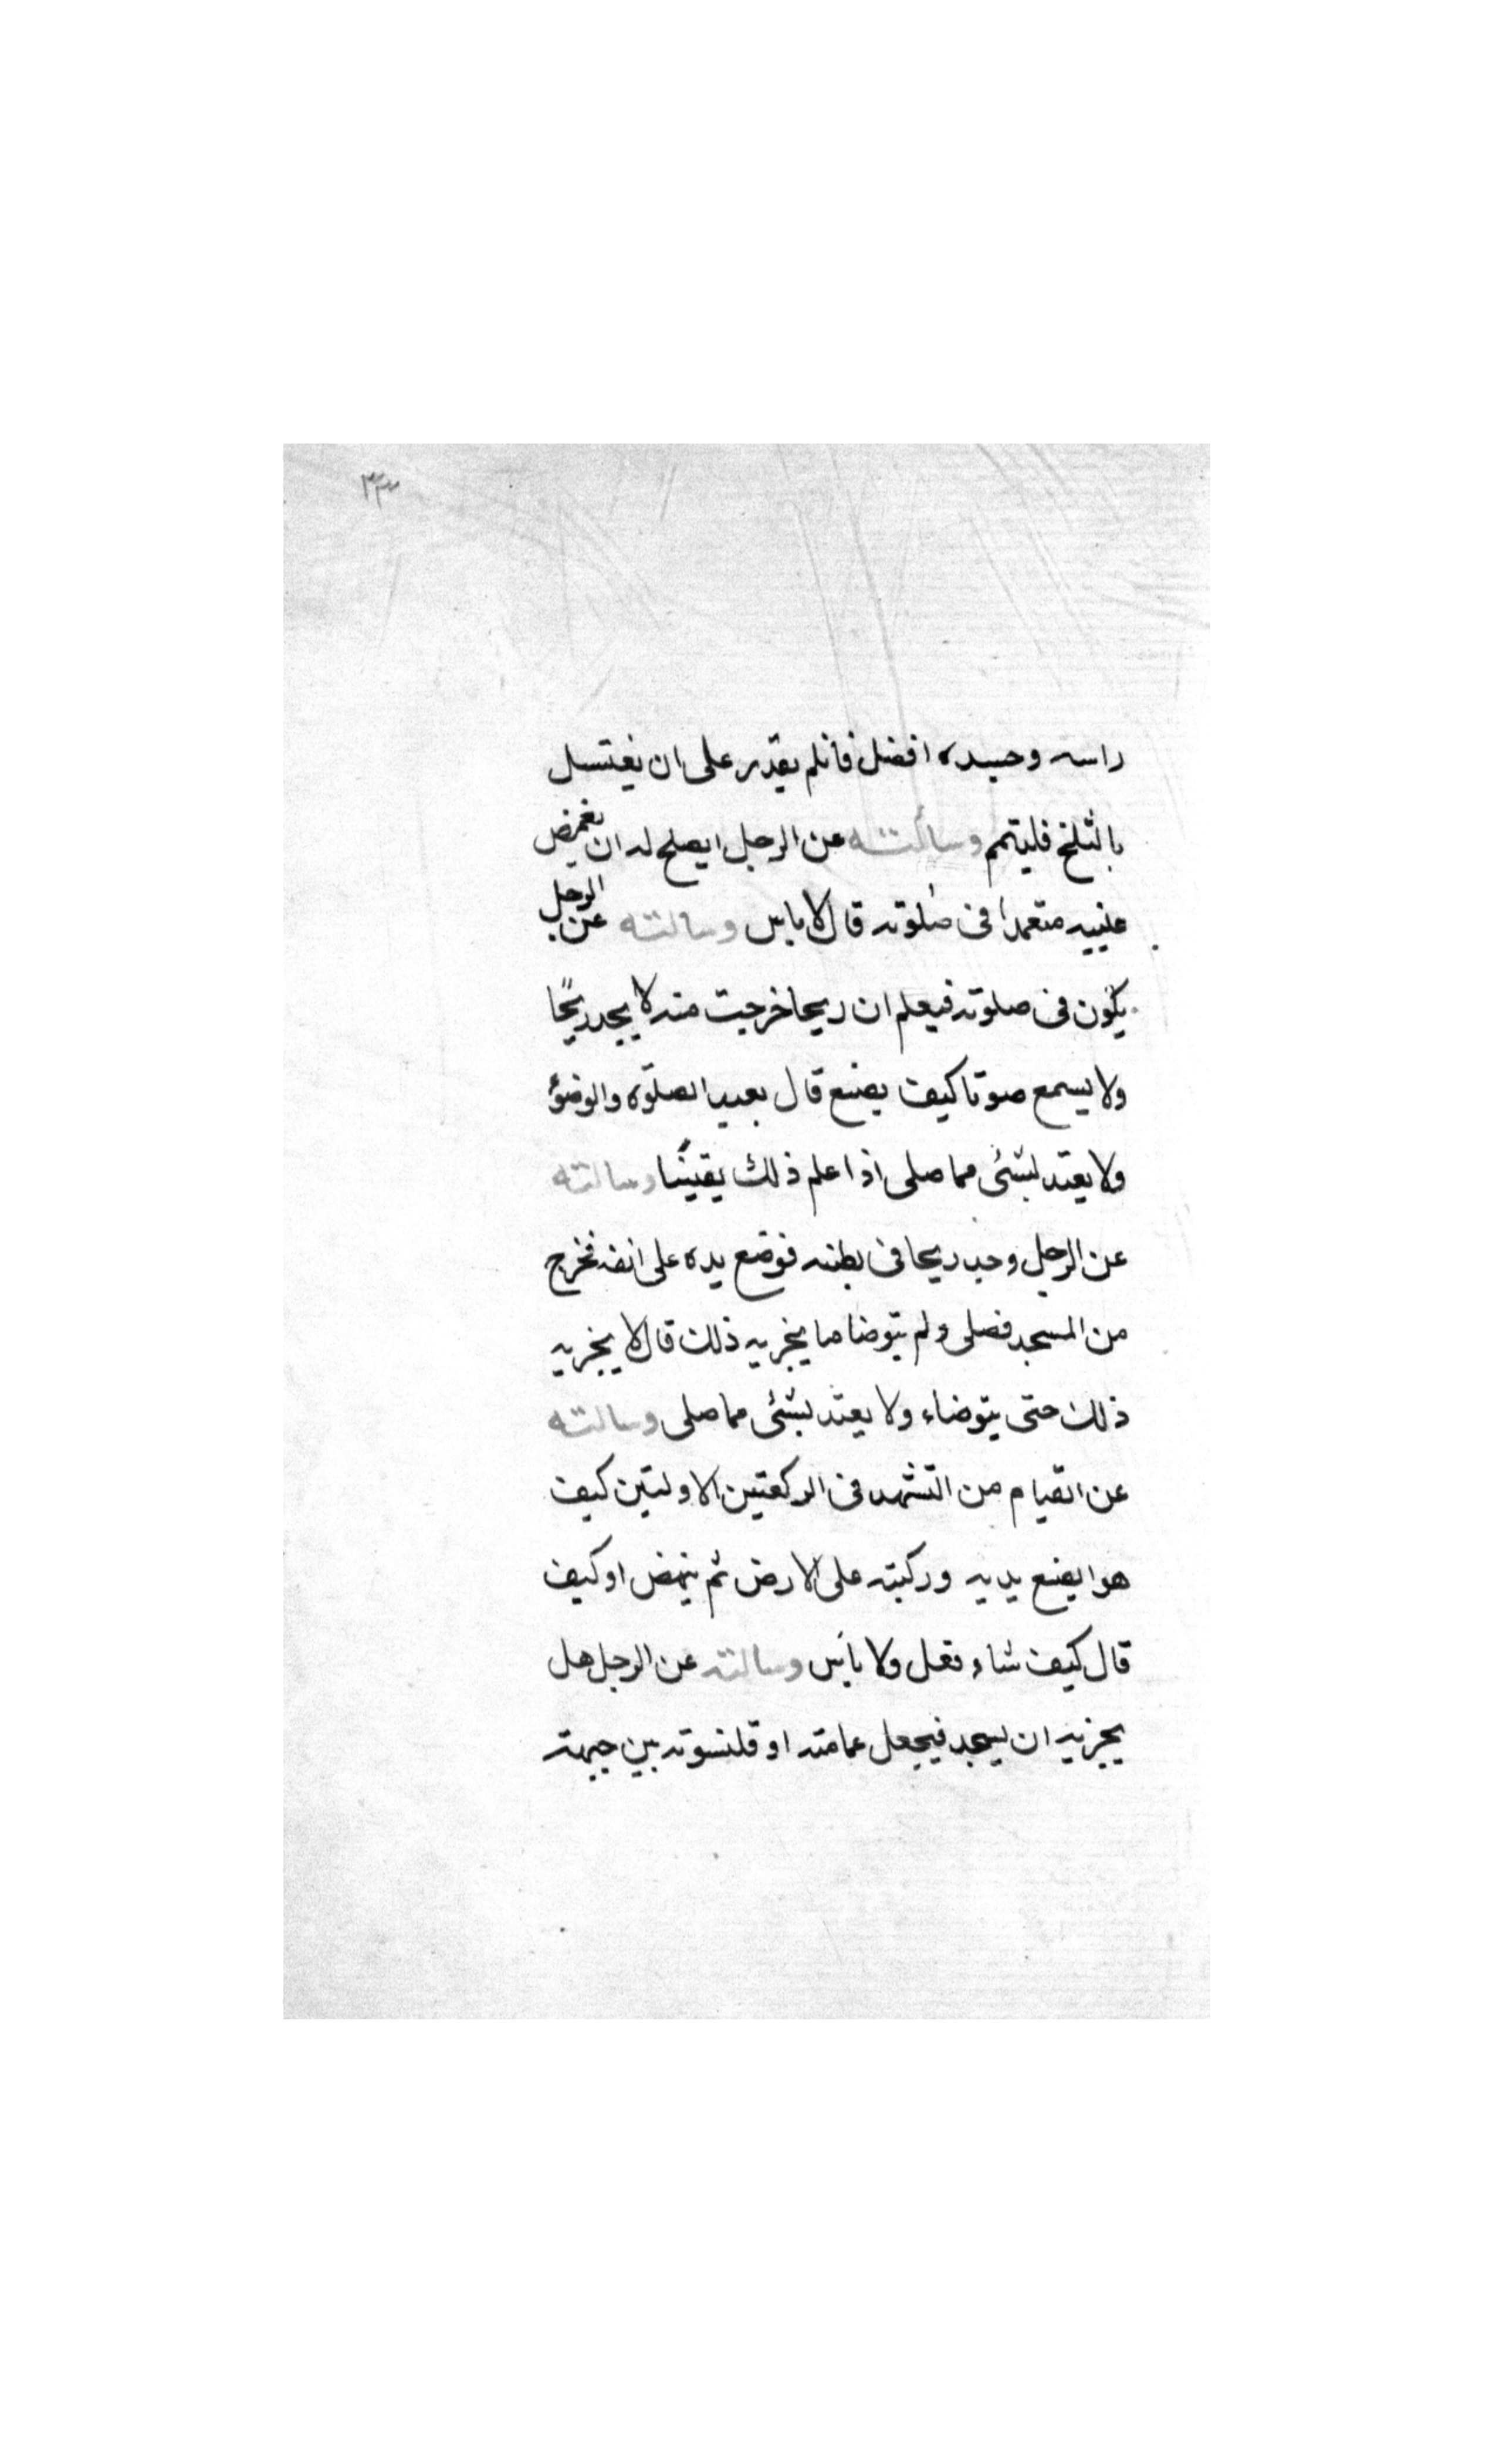 ٣٣
راسه وجسده افضل فانلم يقدر على ان يغتسل
بالثلج فليتمم وسألته عن الرجل ايصلح له ان يغمض
عينيه متعمدا فى صلوته قال لا باس وسالته عن الرجل
يكون فى صلوته فيعلم ان ريحا خرجت منه لا يجد ريحًا
ولا يسمع صوتا كيف يصنع قال يعيد الصلوة والوضؤ
ولا يعتد بشئ مما صلى اذا علم ذلك يقينًا وسالته
عن الرجل وجد ريحا فى بطنه فوضع يده على انفه فخرج
من المسجد فصلى ولم يتوضا ما يجزيه ذلك قال لا يجزيه
ذلك حتى يتوضاء ولا يعتد بشئ مما صلى وسالته
عن القيام من التشهد فى الركعتين الاولتين كيف
هو ايضع يديه وركبته على الارض ثم ينهض او كيف
قال كيف شاء فعل ولا بأس وسالته عن الرجل هل
يجزيه ان يسجد فيجعل عمامته او قلنسوته بين جبهته